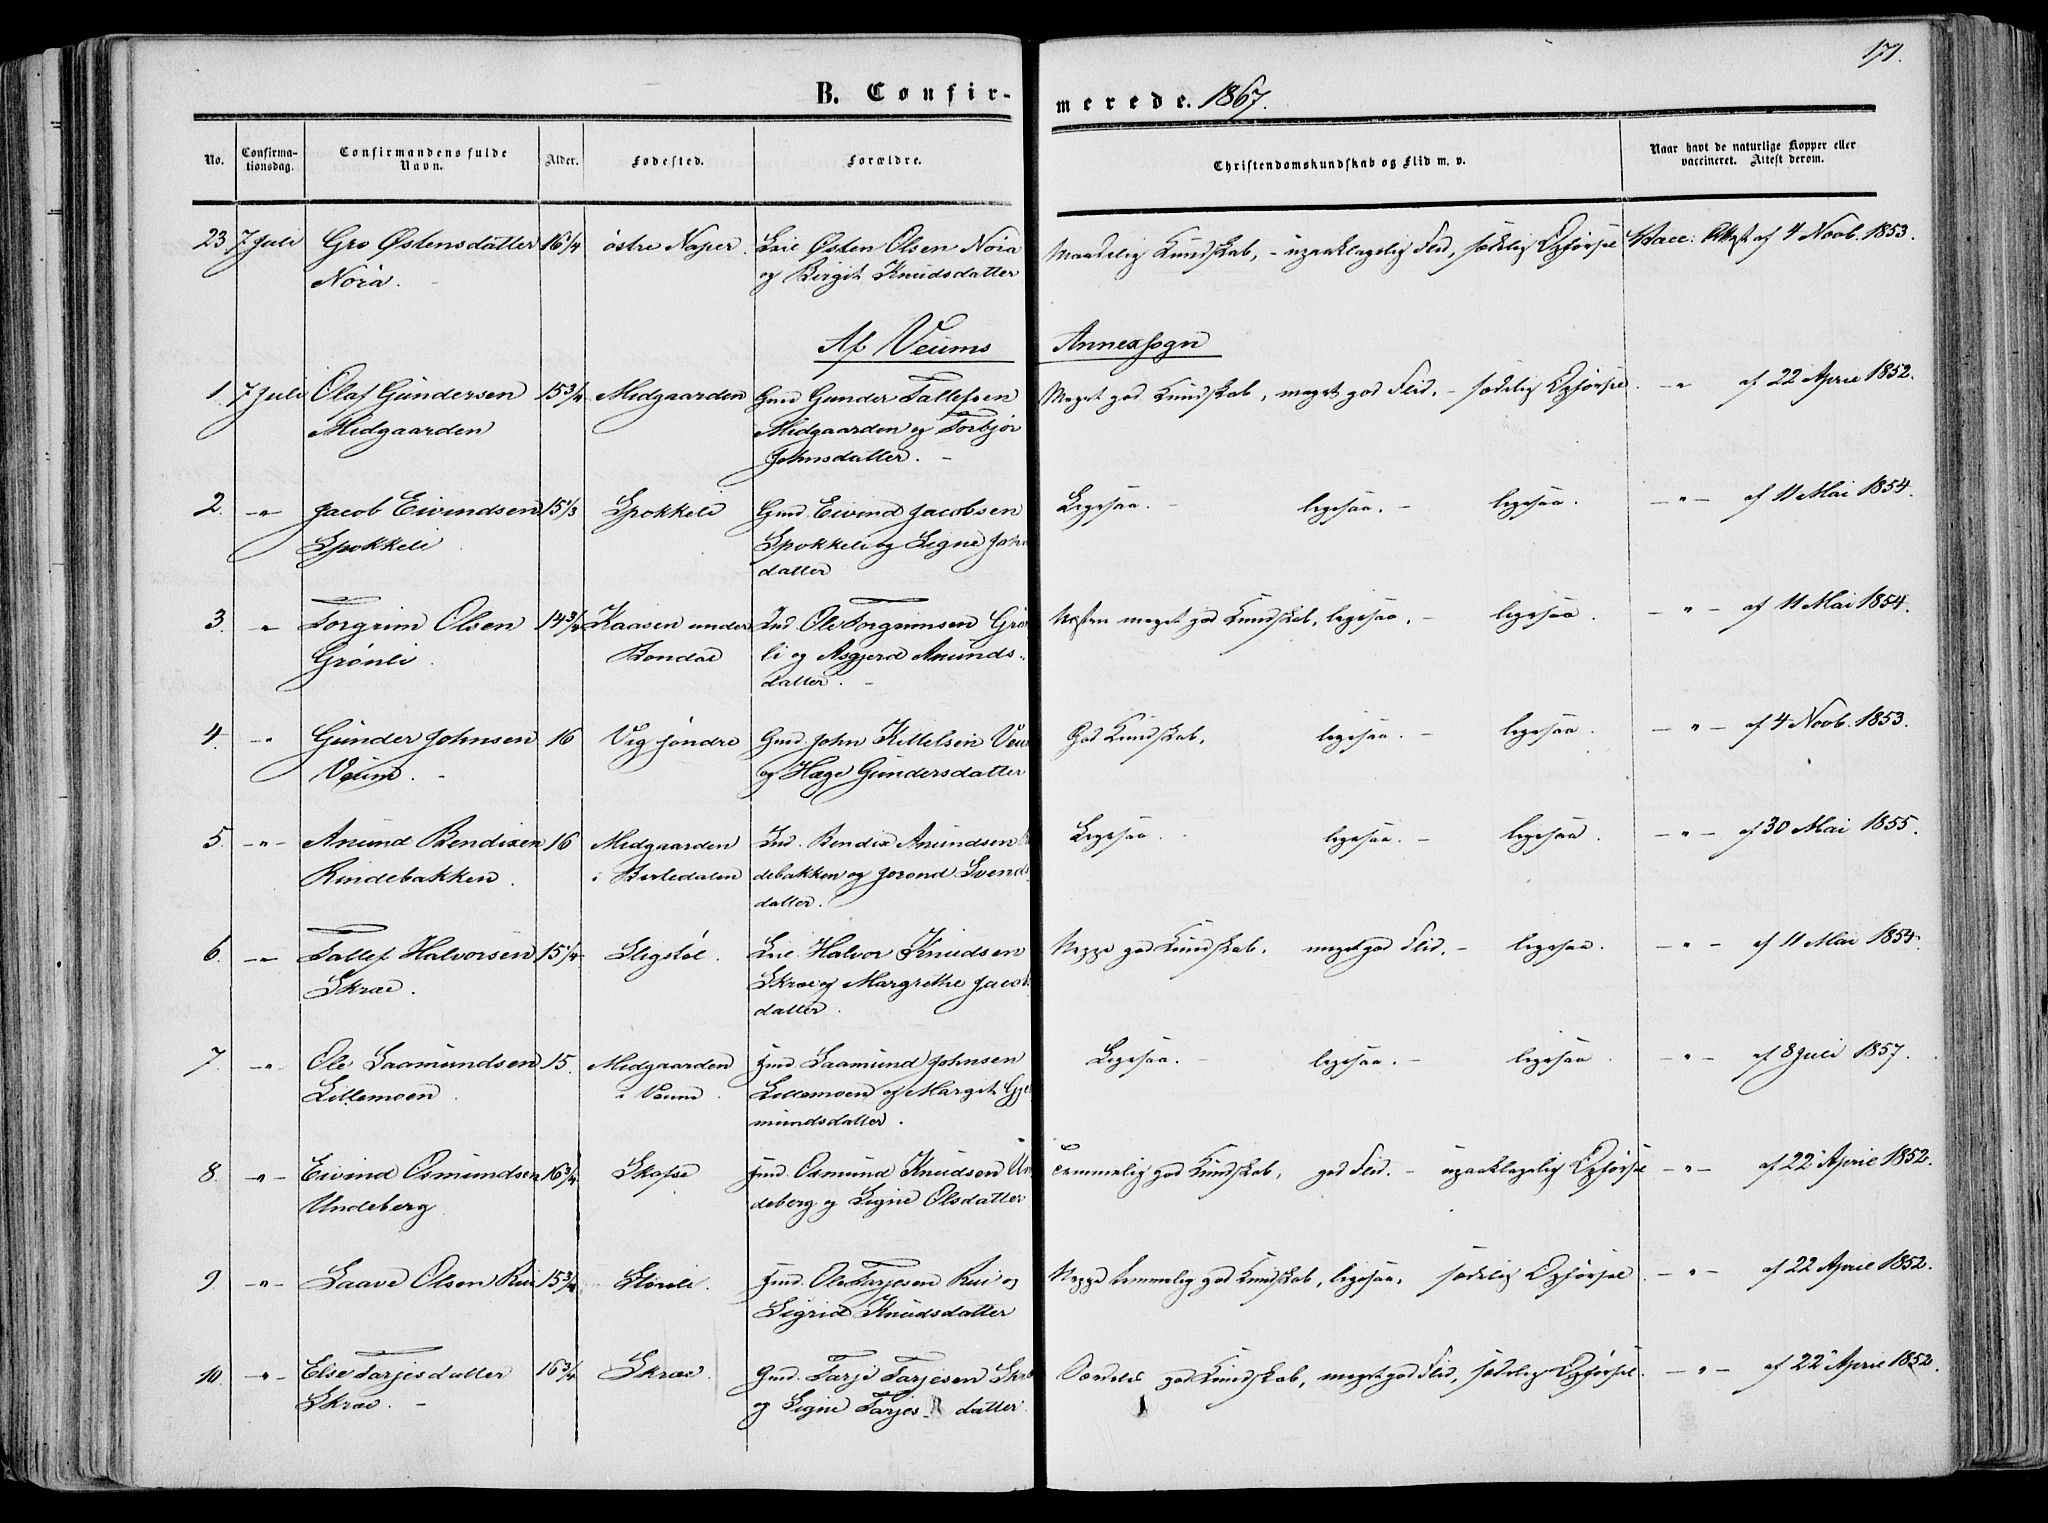 171.
B. Confirmerede. 1867.
No. Confirmationsdag. Confirmandens fulde Navn. Alder. Fødested. Forældre. Christendomskundskab og Flid m. v. Naar havt de naturlige Kopper eller vaccineret. Attest derom.
23 7 Juli Gro Østensdatter 16 1/4 østre Naper. Østen Olsen Nora Maadelig Kundskab, - upaaklagelig Flid, sædelig Opførsel Vacc: Attest af 4 Novb. 1853.
Nora. og Birgit Knudsdatter
Af Veums Annexsogn
1. 7 Juli Olaf Gundersen 15 3/4 Midgaarden Gmd Gunder Tallefsen Meget god Kundskab, meget god Flid, - sædelig Opførsel. -"- af 22 April 1852.
Midgaarden Midgaarden og Torbjør
Johnsdatter. -
2. -"- Jacob Eivindsen 15 1/3 Spokkeli Gmd. Eivind Jacobsen Ligesaa. - ligesaa. - ligesaa. -"- af 11 Mai 1854.
Spokkeli Spokkeli og Signe
datter
3. " Torgrim Olsen 14 3/4 Kaasen under Ind. Ole Torgrimsen Grøn Næsten meget god Kundskab, ligesaa. - ligesaa. -"- af 11 Mai 1854.
Grønli. Bondal li og Asgjerd Anunds-
datter. -
4. -"- Gunder Johnsen 16 Vig søndre Gmd. John Kittelsen God Kundskab, ligesaa. - ligesaa. -"- af 4 Novb. 1853.
Veum. - og Hæge Gundersdatter
5. -"- Anund Bendixen 16 Midgaarden Ind. Bendix Anundsen Ligesaa. ligesaa. - ligesaa. -"- af 30 Mai 1855.
Rindebakken. i Birtedalen debakken og Jorond Svends
datter.
6. -"- Tallef Halvorsen 15 1/4 Stigstøl. Halvor Knudsen Neppe god Kundskab. meget god Flid, - ligesaa. -"- af 11 Mai 1854.
Skrae. Skrae og Margrethe Jacob
datter.
7 -"- Ole Saamundsen 15. Midgaarden Saamund Johnsen Ligesaa. - ligesaa. - ligesaa. -"- af 8 Juli 1857.
Lillemoen. i Veum. Lillemoen og Margit
mundsdatter.
8. -"- Eivind Osmundsen 16 3/4 Skafse Osmund Knudsen Un Temmelig god Kundskab, god Flid. - upaaklagelig Opførsel -"- af 22 April 1852.
Undeberg. deberg og Signe Olsdatter
9. -"- Saave Olsen Rui 15 3/4 Ole Tarjesen Rui og Neppe temmelig god Kundskab, ligesaa, sædelig Opførsel -"- af 22 April 1852.
Sigrid Knudsdatter
10. -"- Else Tarjesdatter 16 3/4 Skrae. Gmd. Tarje Tarjesen Særdeles god Kundskab, meget god Flid, sædelig Opførsel. -"- af 22 April 1852.
Skrae. - og Signe Tarjes- datter